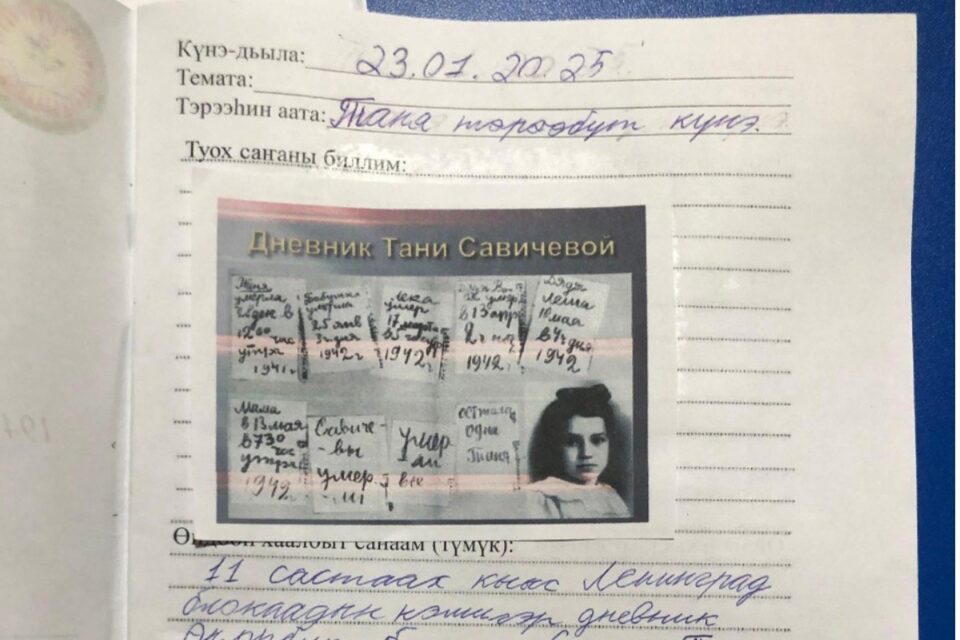 Күнэ-дьыла: 23.01.2025
Темата:
Тэрээһин аата: Таня төрөөбүт күнэ.
Туох саҥаны биллим:
Дневник Тани Савичевой
Женя
умерла
28 дек в
12 00 час
утра
1941 г
Бабушка
умерла
25 янв
3 ч дня
1942 г
Лека
умер
17 марта
в 5 час утр
1942 г
Дядя Вася
умер
в 13 апр
2 ч ноч
1942 г
Дядя
Леша
10 мая
в 4 ч дня
1942
Мама
в 13 мая
в 7 30
час
утра
1942
Савиче-
-вы
умер
-ли
умер
ли
все
осталась
одна
Таня
хаалбыт санаам (түмүк):
11 саастаах кыыс Ленинград
блокаадын кэмигэр дневник